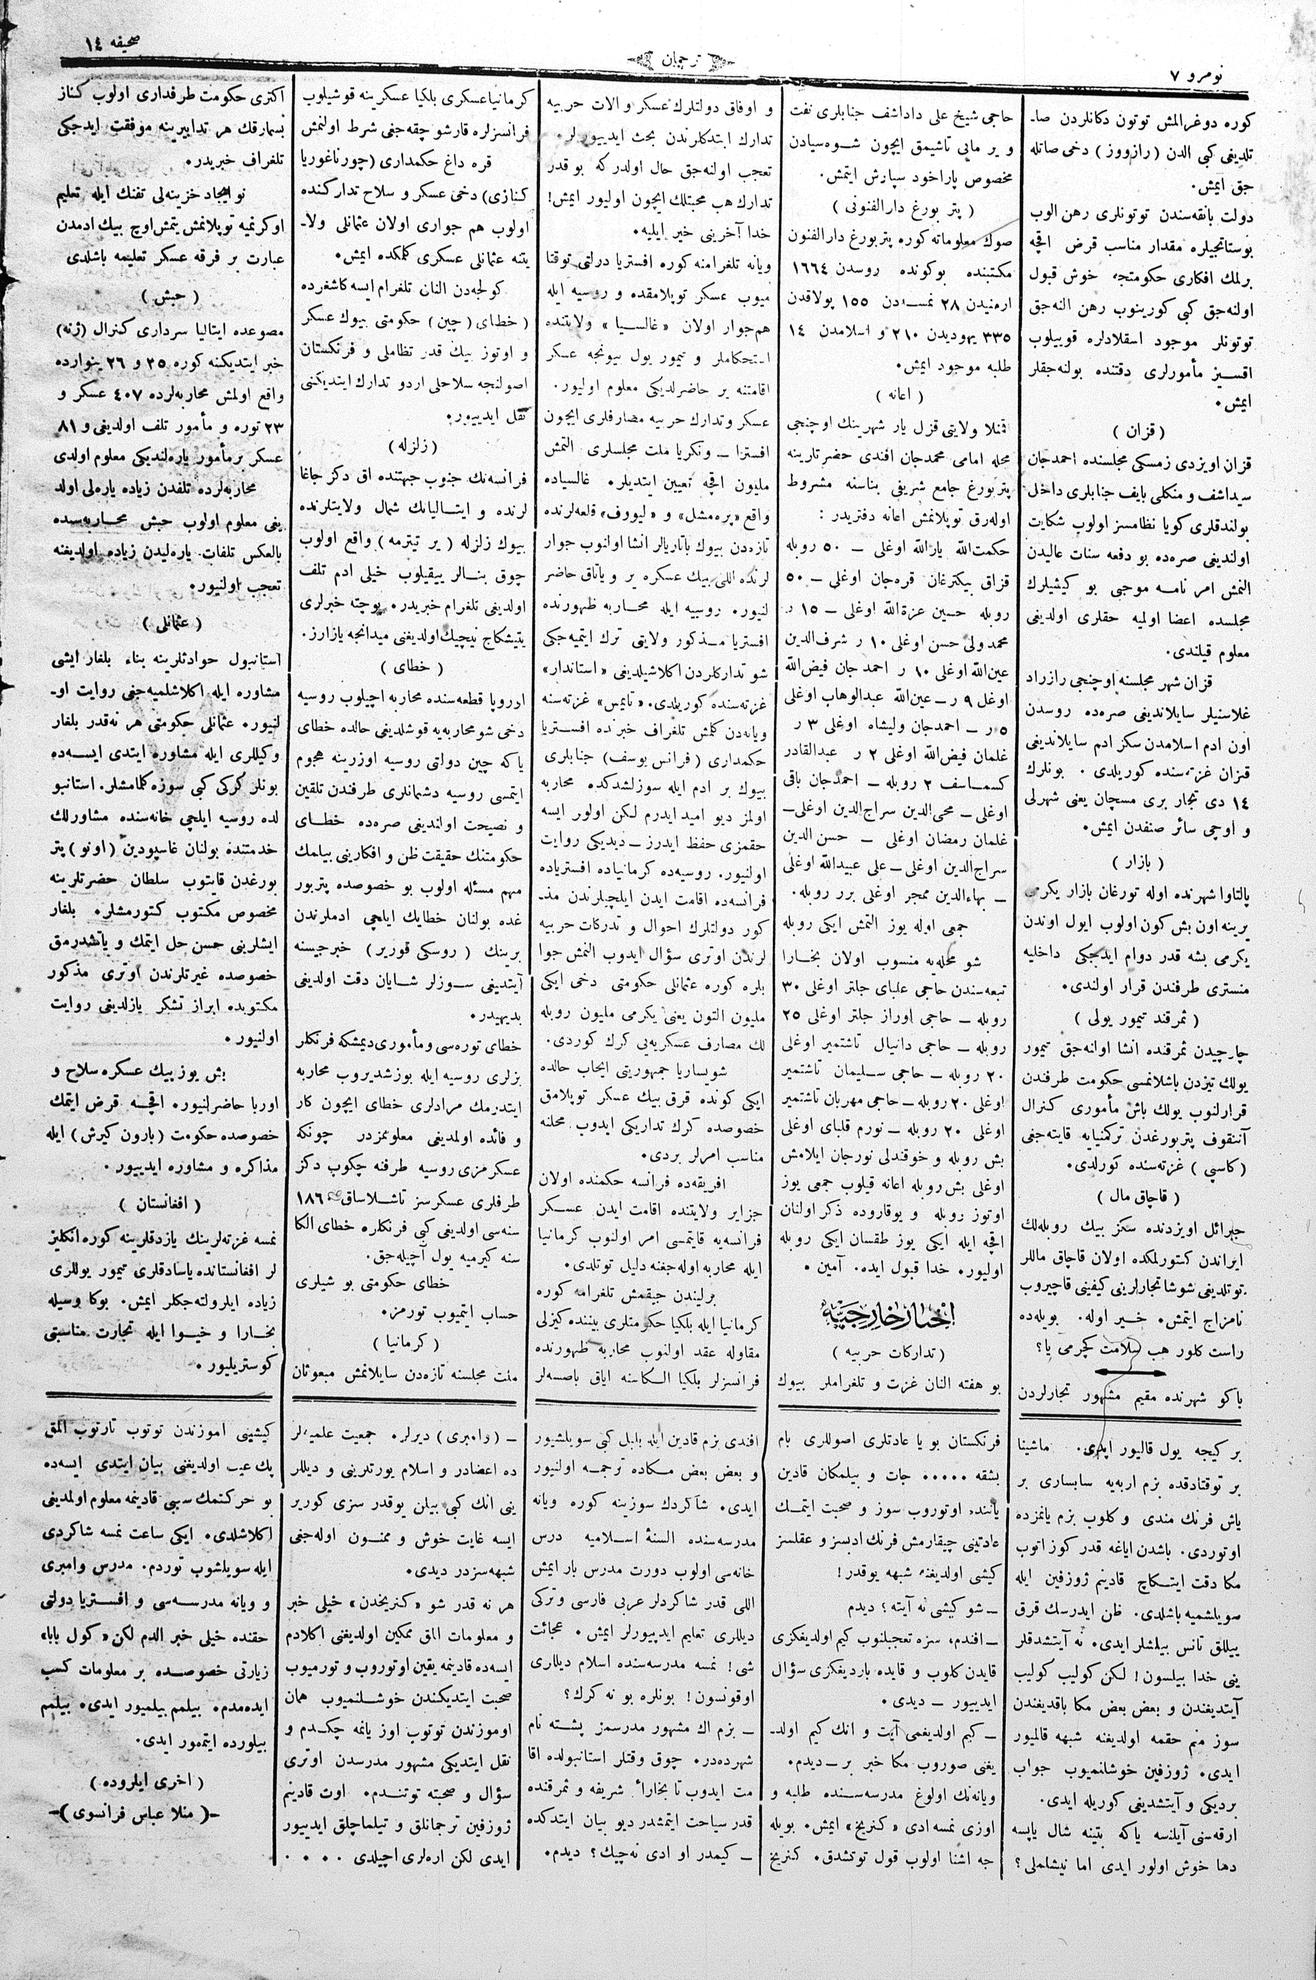 نومرو ٧
ترجمان
صحيفه ١٤
كوره دوغرالمش توتون دكانلردن صا-
تلديغى كبى الدن (رازووز) دخى صاتله
جق ايمش.
دولت بانقه سندن توتونلرى رهن الوب
بوستانجيلره مقدار مناسب قرض اقچه
برلمك افكارى حكومتجه خوش قبول
اولنه جق كبى كورينوب رهن النه جق
توتونلر موجود اسقلادلره قويبلوب
اقسيز مأمورلرى دقتنده بولنه جقلر
ايمش.
(قزان)
قزان اويزدى زمسكى مجلسنده احمدجان
سيداشف و منكلى بايف جنابلرى داخل
بولندقلرى كويا نظامسز اولوب شكايت
اولنديغى صره ده بو دفعه سنات عاليدن
النمش امر نامه موجبى بو كيشيلرك
مجلسده اعضا اولميه حقلرى اولديغى
معلوم قيلندى.
قزان شهر مجلسنه اوچنجى رازراد
غلاسنيلر سايلانديغى صره ده روسدن
اون ادم اسلامدن سكز ادم سايلانديغى
قزان غزته سنده كوريلدى. بونلرك
١٤ دى تجار برى مسچان يعنى شهرلى
و اوچى سائر صنفدن ايمش.
(بازار)
پالتاوا شهرنده اوله تورغان بازار يكرمى
يرينه اون بش كون اولوب ايول اوندن
يكرمى بشه قدر دوام ايده جكى داخليه
منسترى طرفندن قرار اولندى.
(ثمرقند تيمور يولى)
چارچيدن ثمرقنده انشا اوله جق تيمور
يولك تيزدن باشلانمسى حكومت طرفندن
قرارلنوب يولك باش مأمورى كنرال
آننقوف پتربورغدن تركمنيايه قايته جغى
(كاسپى) غزته سنده كورلدى.
(قاچاق مال)
جبرائل اويزدنده سكز بيك روبله لك
ايراندن كتورلمكده اولان قاچاق ماللر
توتلديغى شوشا تجارلرينى كيفينى قاچيروب
نامزاج ايتمش. خير اوله. بويله ده
راست كلور هب سلامت كچرمى يا؟
باكو شهرنده مقيم مشهور تجارلردن
حاجى شيخ على داداشف جنابلرى نفت
و ير مايى تاشيمق ايچون شوه سيادن
مخصوص پاراخود سپارش ايتمش.
(پتر بورغ دار الفنونى)
صوك معلوماته كوره پتربورغ دارالفنون
مكتبنده بوكونده روسدن ١٦٦٤
ارمنيدن ٢٨ نمسه دن ١٥٥ پولاقدن
٣٣٥ يهوديدن ٢١٠ و اسلامدن ١٤
طلبه موجود ايمش.
(اعانه)
اقملا ولايتى قزل يار شهرينك اوچنجى
محله امامى محمدجان افندى حضرتلرينه
پتربورغ جامع شريفى بناسنه مشروط
اوله رق توپلانمش اعانه دفتريدر:
حكمت الله يارالله اوغلى — ٥٠ روبله
قزاق بيكترغان قره جان اوغلى — ٥٠
روبله — حسين عزة الله اوغلى — ١٥ ر
محمد ولى حسن اوغلى ١٠ ر شرف الدين
عين الله اوغلى ١٠ ر احمد جان فيض الله
اوغلى ٩ ر — عين الله عبدالوهاب اوغلى
٥ ر — احمدجان وليشاه اوغلى ٣ ر
غلمان فيض الله اوغلى ٢ ر عبدالقادر
كسماسف ٢ روبله — احمدجان باقى
اوغلى — محى الدين سراج الدين اوغلى—
غلمان رمضان اوغلى — حسن الدين
سراج الدين اوغلى — على عبيدالله اوغلى
— بهاءالدين ممجر اوغلى برر روبله.
جمعى اوله يوز التمش ايكى روبله
شو محله يه منسوب اولان بخارا
تبعه سندن حاجى علباى جلتر اوغلى ٣٠
روبله — حاجى اوراز جلتر اوغلى ٢٥
روبله — حاجى دانيال تاشتمير اوغلى
٢٠ روبله — حاجى سليمان تاشتمير
اوغلى ٢٠ روبله — حاجى مهربان تاشتمير
اوغلى ٢٠ روبله — نورم قلباى اوغلى
بش روبله و خوقندلى نورجان ايلامش
اوغلى بش روبله اعانه قيلوب جمعى يوز
اوتوز روبله و يوقاروده ذكر اولنان
اقچه ايله ايكى يوز طقسان ايكى روبله
اوليور. خدا قبول ايده. آمين.
اخبار خارجيه
(تداركات حربيه)
بو هفته النان غزت و تلغراملر بيوك
و اوفاق دولتلرك عسكر و الات حربيه
تدارك ايتدكلرندن بحث ايدييورلر.
تعجب اولنه جق حال اولدركه بو قدر
تدارك هب محبتلك ايچون اوليور ايمش!
خدا آخرينى خير ايليه.
ويانه تلغرامنه كوره افستريا دولتى توقتا
ميوب عسكر توپلامقده و روسيه ايله
هم جوار اولان «غالسيا» ولايتنده
استحكاملر و تيمور يول بيونجه عسكر
اقامتنه ير حاضرلديكى معلوم اوليور.
عسكر و تدارك حربيه مصارفلرى ايچون
افستريا — ونكريا ملت مجلسلرى التمش
مليون اقچه تعيين ايتديلر. غالسياده
واقع «پره مشل» و «ليووف» قلعه لرنده
تازه دن بيوك باتاريالر انشا اولنوب جوار
لرنده اللى بيك عسكره ير و ياتاق حاضر
لنيور. روسيه ايله محاربه ظهورنده
افستريا مذكور ولايتى ترك ايتميه جكى
شو تداركلردن اكلاشيلديغى «استاندار»
غزته سنده كوريلدى. «تايمس» غزته سنه
ويانه دن كلمش تلغراف خبرنده افستريا
حكمدارى (فرانس يوسف) جنابلرى
بيوك بر ادم ايله سوزلشدكده. محاربه
اولمز ديو اميد ايدرم لكن اولور ايسه
حقمزى حفظ ايدرز — ديديكى روايت
اولنيور. روسيه ده كرمانياده افسترياده
فرانسه ده اقامت ايدن ايلچيلرندن مذ-
كور دولتلرك احوال و تدركات حربيه
لرندن اوترى سؤال ايدوب النمش جوا
بلره كوره عثمانلى حكومتى دخى ايكى
مليون التون يعنى يكرمى مليون روبله
لك مصارف عسكريه يى كرك كوردى.
شويساريا جمهوريتى ايجاب حالده
ايكى كونده قرق بيك عسكر توپلامق
خصوصده كرك تداريكى ايدوب محلنه
مناسب امرلر بردى.
افريقه ده فرانسه حكمنده اولان
جزاير ولايتنده اقامت ايدن عسكر
فرانسه يه قايتمسى امر اولنوب كرمانيا
ايله محاربه اوله جغنه دليل توتلدى.
برليندن چيقمش تلغرامه كوره
كرمانيا ايله بلكيا حكومتلرى بيننده كيزلى
مقاوله عقد اولنوب محاربه ظهورنده
فرانسزلر بلكيا الكاسنه اياق باصسه لر
كرمانيا عسكرى بلكيا عسكرينه قوشيلوب
فرانسزلره قارشو چقه جغى شرط اولنمش
قره داغ حكمدارى (چورناغوريا
كنازى) دخى عسكر و سلاح تداركنده
اولوب هم جوارى اولان عثمانلى ولا-
يتنه عثمانلى عسكرى كلمكده ايمش.
كولجه دن النان تلغرام ايسه كاشغرده
(خطاى (چين) حكومتى بيوك عسكر
و اوتوز بيك قدر نظاملى و فرنكستان
اصولنجه سلاحلى اردو تدارك ايتديكنى
نقل ايدييور.
(زلزله)
فرانسه نك جنوب جهتنده اق دكز جاغا
لرنده و ايتاليانك شمال ولايتلرنده
بيوك زلزله (ير تيترمه) واقع اولوب
چوق بنالر ييقيلوب خيلى ادم تلف
اولديغى تلغرام خبريدر. پوچته خبرلرى
يتيشكاچ نيچيك اولديغنى ميدانجه يازارز.
(خطاى)
اروپا قطعه سنده محاربه اچيلوب روسيه
دخى شو محاربه يه قوشلديغى حالده خطاى
ياكه چين دولتى روسيه اوزرينه هجوم
ايتمسى روسيه دشمانلرى طرفندن تلقين
و نصيحت اولنديغى صره ده خطاى
حكومتنك حقيقت ظن و افكارينى بيلمك
مهم مسئله اولوب بو خصوصده پتربور
غده بولنان خطايك ايلچى ادملرندن
برينك (روسكى قورير) خبرجيسنه
آيتديغى سوزلر شايان دقت اولديغى
بديهيدر.
خطاى توره سى و مأمورى ديمشكه فرنكلر
بزلرى روسيه ايله بوزشديروب محاربه
ايتدرمك مرادلرى خطاى ايچون كار
و فائده اولمديغى معلومزدر چونكه
عسكرمزى روسيه طرفنه چكوب دكز
طرفلرى عسكرسز تاشلاساق ١٨٦٠
سنه سى اولديغى كبى فرنكلره خطاى الكا
سنه كيرميه يول آچيله جق.
خطاى حكومتى بو شيلرى
حساب ايتميوب تورمز.
(كرمانيا)
ملت مجلسنه تازه دن سايلانمش مبعوثان
اكثرى حكومت طرفدارى اولوب كناز
بسمارقك هر تدابيرينه موفقت ايده جكى
تلغراف خبريدر.
نو ايجاد خزينه لى تفنك ايله تعليم
اوكرنميه توپلانمش يتمش اوچ بيك ادمدن
عبارت بر فرقه عسكر تعليمه باشلدى
(حبش)
مصوعده ايتاليا سردارى كنرال (ژنه)
خبر ايتديكنه كوره ٢٥ و ٢٦ ينوارده
واقع اولمش محاربه لرده ٤٠٧ عسكر و
٢٣ توره و مأمور تلف اولديغى و ٨١
عسكر بر مأمور ياره لنديكى معلوم اولدى
محاربه لرده تلفدن زياده ياره لى اولد
يغى معلوم اولوب حبش محاربه سنده
بالعكس تلفات ياره ليدن زياده اولديغنه
تعجب اولنيور.
(عثمانلى)
استانبول حوادثلرينه بناء بلغار ايشى
مشاوره ايله اكلاشلميه جغى روايت او-
لنيور. عثمانلى حكومتى هر نه قدر بلغار
وكيللرى ايله مشاوره ايتدى ايسه ده
بونلر كركى كبى سوزه كلمامشلر. استانبو
لده روسيه ايلچى خانه سنده مشاورلك
خدمتنده بولنان غاسپودين (اونو) پتر
بورغدن قايتوب سلطان حضرتلرينه
مخصوص مكتوب كتورمشلر. بلغار
ايشلرينى حسن حل ايتمك و ياتشدرمق
خصوصده غيرتلرندن اوترى مذكور
مكتوبده ابراز تشكر يازلديغى روايت
اولنيور.
بش يوز بيك عسكره سلاح و
اوربا حاضرلنيور. اقچه قرض ايتمك
خصوصده حكومت (بارون كيرش) ايله
مذاكره و مشاوره ايدييور.
(افغانستان)
نمسه غزته لرينك يازدقلرينه كوره انكليز
لر افغانستانده ياسادقلرى تيمور يوللرى
زياده ايلرولته جكلر ايمش. بوكا وسيله
بخارا و خيوا ايله تجارت مناسبتى
كوستريليور.
بر كيجه يول قاليور ايدى. ماشينا
بر توقتادقده بزم اربه يه سابسارى بر
ياش فرنك مندى و كلوب بزم يانمزده
اوتوردى. باشدن اياغه قدر كوز اتوب
مكا دقت ايتكاچ قادينم ژوزفين ايله
صويلشميه باشلدى. ظن ايدرسك قرق
ييللق تانس بيلشلر ايدى. نه آيتشدقلر
ينى خدا بيلسون! لكن كوليب كوليب
آيتديغندن و بعض بعض مكا باقديغندن
سوز منم حقمه اولديغنه شبهه قالميور
ايدى. ژوزفين خوشلانميوب جواب
برديكى و آيتشديغى كوريله ايدى.
ارقه سنى آيلنسه ياكه بتينه شال ياپسه
دها خوش اولور ايدى اما نيشلملى؟
فرنكستان بو يا عادتلرى اصوللرى بام
بشقه ..... جات و بيلمكان قادين
ياننده اوتوروب سوز و صحبت ايتمك
عادتينى چيقارمش فرنك ادبسز و عقلسز
كيشى اولديغنه شبهه يوقدر!
— شو كيشى نه آيته؟ ديدم
— افندم، سزه تعجبلنوب كيم اولديغكزى
قايدن كلوب و قايده بارديغكزى سؤال
ايدييور — ديدى.
— كيم اولديغمى آيت و انك كيم اولد-
يغنى صوروب مكا خبر بر — ديدم.
ويانه نك اولوغ مدرسه سنده طلبه و
اوزى نمسه ادى «كنريخ» ايمش. بويله
جه اشنا اولوب قول توتشدق. كنريخ
افندى بزم قادين ايله بلبل كبى سويلشيور
و بعض بعض مكاده ترجمه اولنيور
ايدى. شاكردك سوزينه كوره ويانه
مدرسه سنده السنۀ اسلاميه درس
خانه سى اولوب دورت مدرس بار ايمش
اللى قدر شاكردلر عربى فارسى و تركى
ديللرى تعليم ايدييورلر ايمش. عجائت
شى! نمسه مدرسه سنده اسلام ديللارى
اوقونسون! بونلره بو نه كرك؟
— بزم اك مشهور مدرسمز پشته نام
شهرده در. چوق وقتلر استانبولده اقا
مت ايدوب تا بخاراۀ شريفه و ثمرقنده
قدر سياحت ايتمشدر ديو بيان ايتدكده
— كيمدر او ادى نه چيك؟ ديدم.
— (وامبرى) ديرلر. جمعيت علميه لر
ده اعضادر و اسلام يورتلرينى و ديللر
ينى انك كبى بيلن يوقدر سزى كورير
ايسه غايت خوش و ممنون اوله جغى
شبهه سزدر ديدى.
هر نه قدر شو «كنريخدن» خيلى خبر
و معلومات المق ممكين اولديغنى اكلادم
ايسه ده قادينمه يقين اوتوروب و تورميوب
صحبت ايتديكندن خوشلنميوب همان
اوموزندن توتوب اوز يانمه چكدم و
نقل ايتديكى مشهور مدرسدن اوترى
سؤال و صحبته توتندم. اوت قادينم
ژوزفين ترجمانلق و تيلماچلق ايدييور
ايدى لكن اره لرى اچيلدى ....
كيشينى اموزندن توتوب تارتوب المق
پك عيب اولديغنى بيان ايتدى ايسه ده
بو حركتمك سببى قادينمه معلوم اولمديغى
اكلاشلدى. ايكى ساعت نمسه شاكردى
ايله سويلشوب توردم. مدرس وامبرى
و ويانه مدرسه سى و افستريا دولتى
حقنده خيلى خبر الدم لكن «كول بابا»
زيارتى خصوصده بر معلومات كسب
ايده مدم. بيلمم بيلميور ايدى. بيلمم
بيلورده ايتميور ايدى.
(اخرى ايلروده)
-(منلا عباس فرانسوى)-